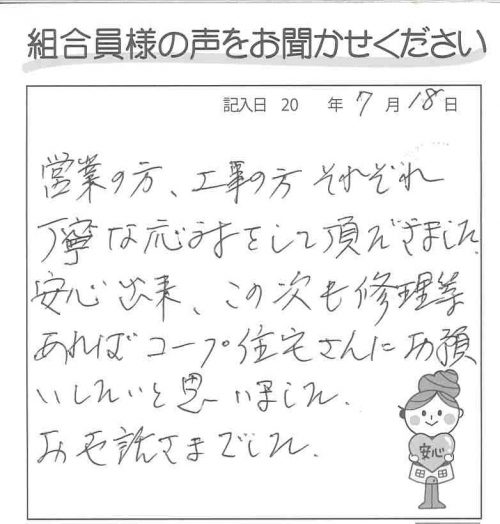 組合員様の声をお聞かせください
記入日 20 年 7 月 18 日
営業の方、工事の方 それぞれ
丁寧な応対をして頂だきました。
安心出来、この次も修理等
あればコープ住宅さんにお願
いしたいと思いました.
お世話さまでした.
安心